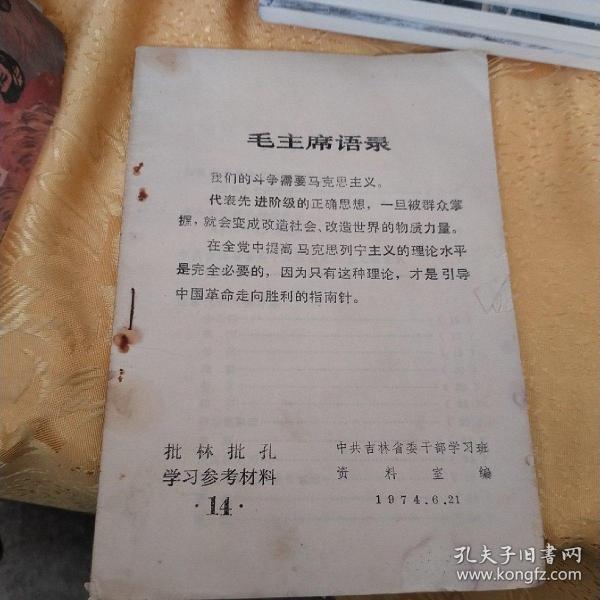 毛主席语录
我们的斗争需要马克思主义。
代表先进阶级的正确思想，一旦被群众掌
握，就会变成改造社会、改造世界的物质力量。
在全党中提高马克思列宁主义的理论水平
是完全必要的，因为只有这种理论，才是引导
中国革命走向胜利的指南针。
批林批孔
学习参考材料
·14·
中共吉林省委干部学习班
资料室编
1974.6.21
孔夫子旧书网
www.kongfz.com